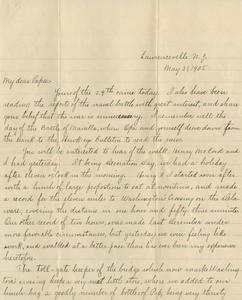 Lawrenceville, N.J.
May 31, 1905
My dear Papa:
Yours of the 29th came today. I also have been
reading the reports of the naval battle with great interest, and share
your belief that the war is unnecessary. I remember well the
day of the Battle of Manilla, when Upti and myself done down from
the bank to the Hawkeye Bulletin to read the news.
You will be interested to hear of the walk Henry McCord and
I had yesterday. It being decoration day, we had a holiday
after eleven o'clock in the morning. Henry & I started soon after
with a lunch of large proportions to eat at noontime, and made
a record for the eleven miles to Washington's Crossing on the Dela-
ware, covering the distance in one hour and fifty three minutes.
Our other record of two hours, was made last December under
more favorable circumstances, but yesterday we were feeling like
work, and walked at a better pace than has ever been my experience
heretofore.
The toll-gate keeper of the bridge which now marks Washing-
ton's crossing keeps a very neat little store, where we added to our
lunch bag a goodly number of bottles of Pop, being very thirsty